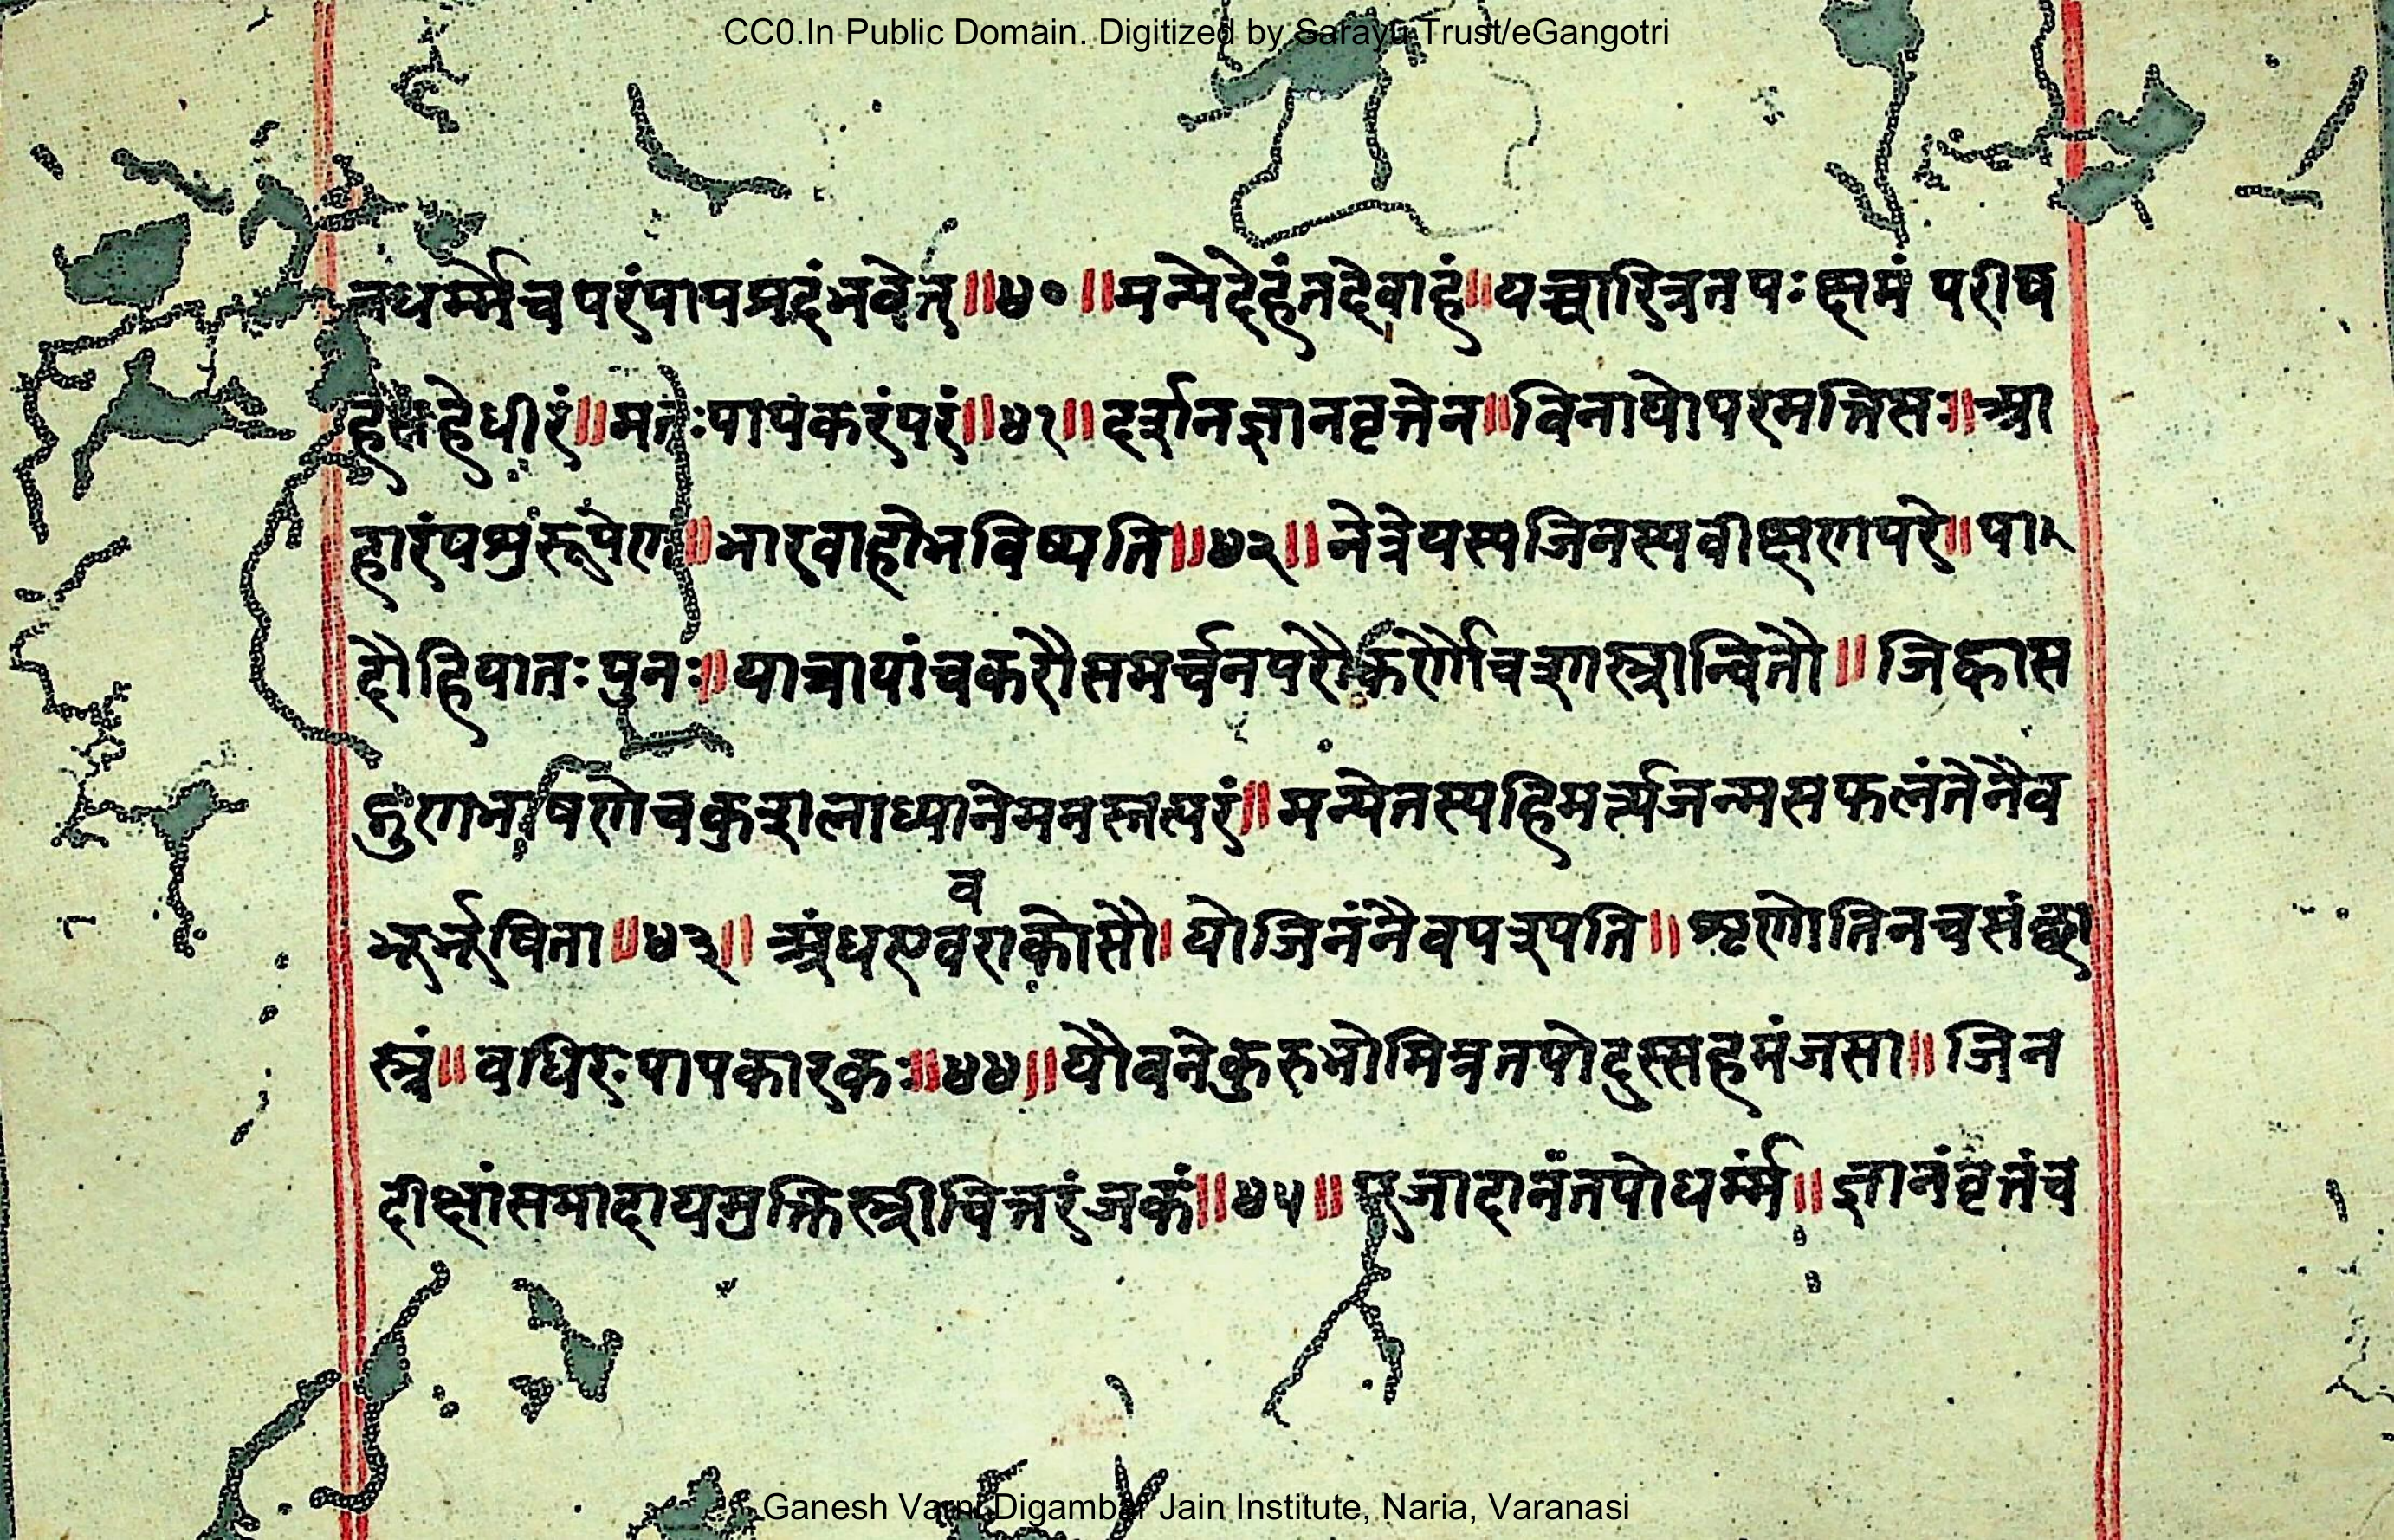 CC0.In Public Domain. Digitized by Sarayu Trust/eGangotri
नधर्म्मेचपरंपापप्रदंभवेत्॥४०॥मन्येदेहंनदेवाहं॥यच्चारित्रतपःक्षमं परीष
हसहेधीरं॥मतःपापकरंपरं॥४१॥दर्शनज्ञानवृत्तेन॥विनायोपरमत्तिसः॥आ
हारंपशुरूपेण॥भारवाहोभविष्यति॥४२॥नेत्रेयस्यजिनस्यवीक्षणपरे॥पा
दौहियातःपुनः॥यात्रायांचकरौसमर्चनपरौकर्णौचशास्त्रान्वितौ॥जिह्वास
गुणभाषणेचकुशलाध्यानेमनस्तत्परं॥मन्येतस्यहिमर्त्यजन्मसफलंतेनैव
व
भूर्भूषिता॥४३॥अंधएवराकोसौ।योजिनंनैवपश्यति॥शृणोतिनचसंछा
स्त्रं॥वधिरःपापकारकः॥४४॥यौवनेकुरुभोमित्रतपोदुस्सहमंजसा॥जिन
दीक्षांसमादायमुक्तिस्त्रीचित्तरंजकं॥४५॥पूजादानंतपोधर्म्मं॥ज्ञानंवृत्तंच
Ganesh Varni Digambar Jain Institute, Naria, Varanasi